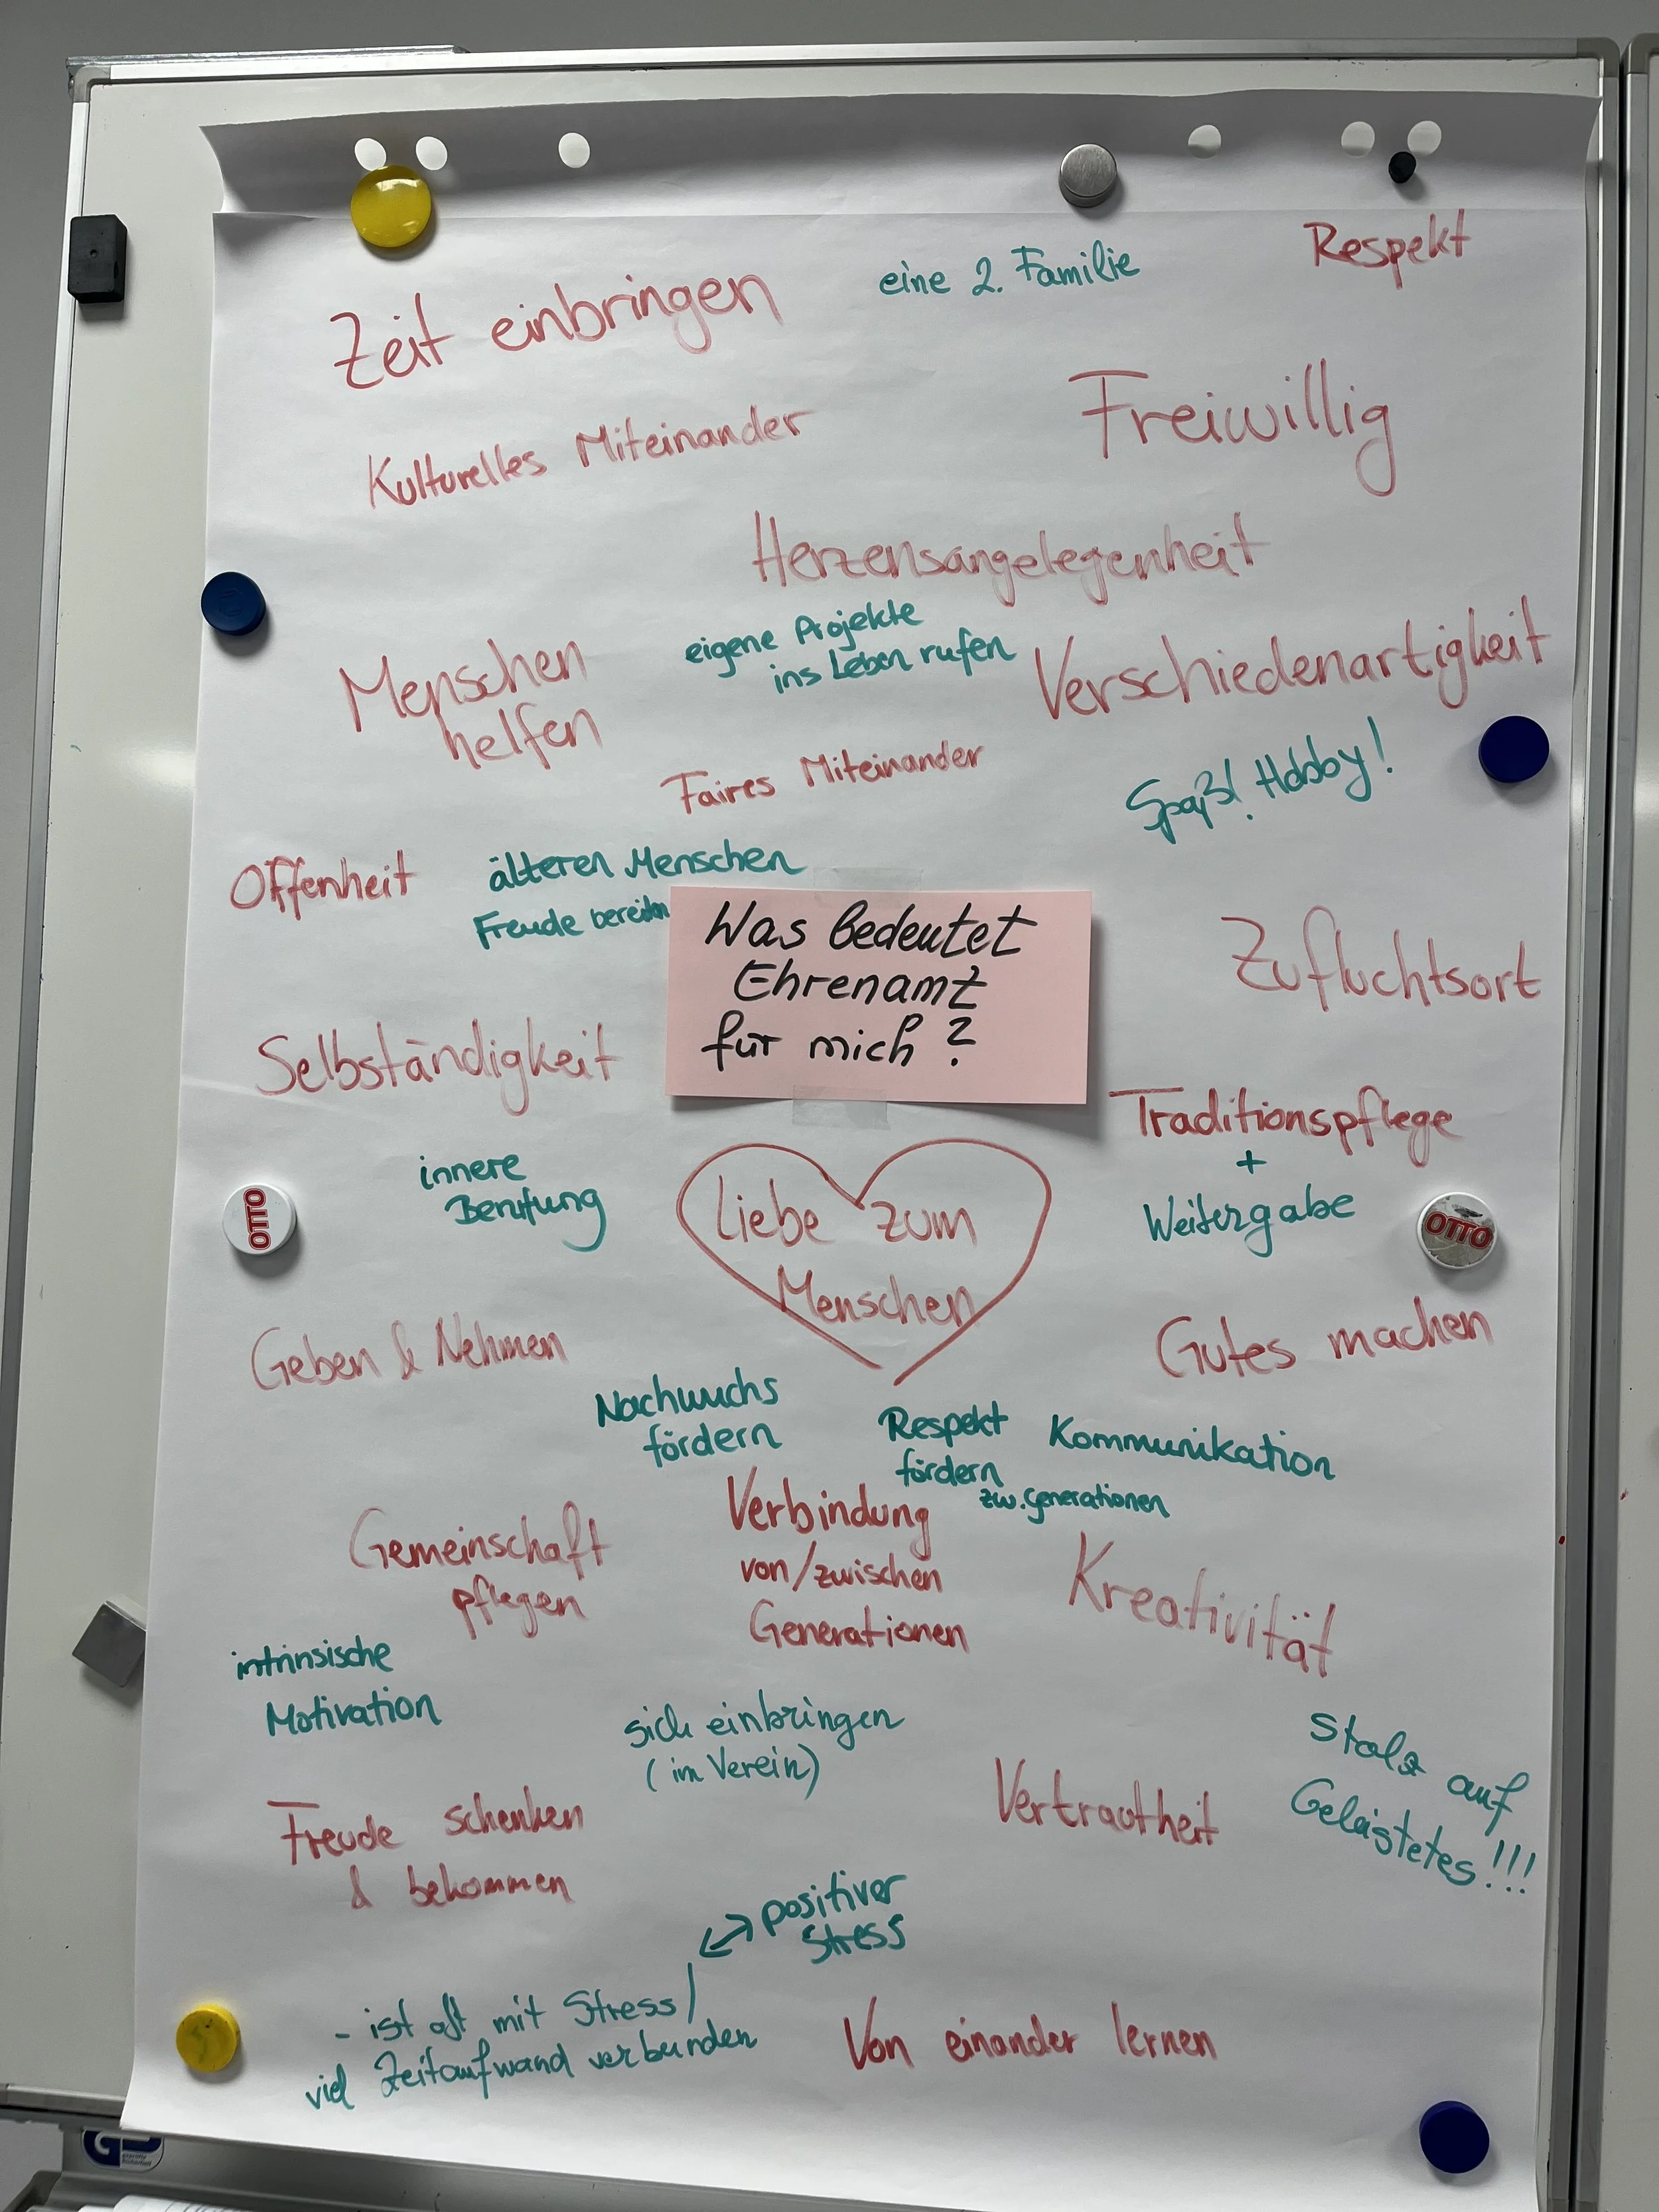 Respekt
eine 2. Familie
Zeit einbringen
Freiwillig
Kulturelles Miteinander
Herzensangelegenheit
eigene Projekte
ins Leben rufen
Menschen
helfen
Verschiedenartigkeit
Faires Miteinander
Spaß! Hobby!
Offenheit
älteren Menschen
Freude bereiten
Was bedeutet
Ehrenamt
für mich?
Zufluchtsort
Selbständigkeit
Traditionspflege
+
Weitergabe
innere
Berufung
Liebe zum
Menschen
OTTO
OTTO
Geben & Nehmen
Gutes machen
Nachwuchs
fördern
Respekt
fördern
zw. Generationen
Kommunikation
Gemeinschaft
pflegen
Verbindung
von/zwischen
Generationen
Kreativität
intrinsische
Motivation
sich einbringen
(im Verein)
Vertrautheit
Stolz auf
Geleistetes!!!
Freude schenken
& bekommen
positiver
Stress
- ist oft mit Stress/
viel Zeitaufwand verbunden
Von einander lernen